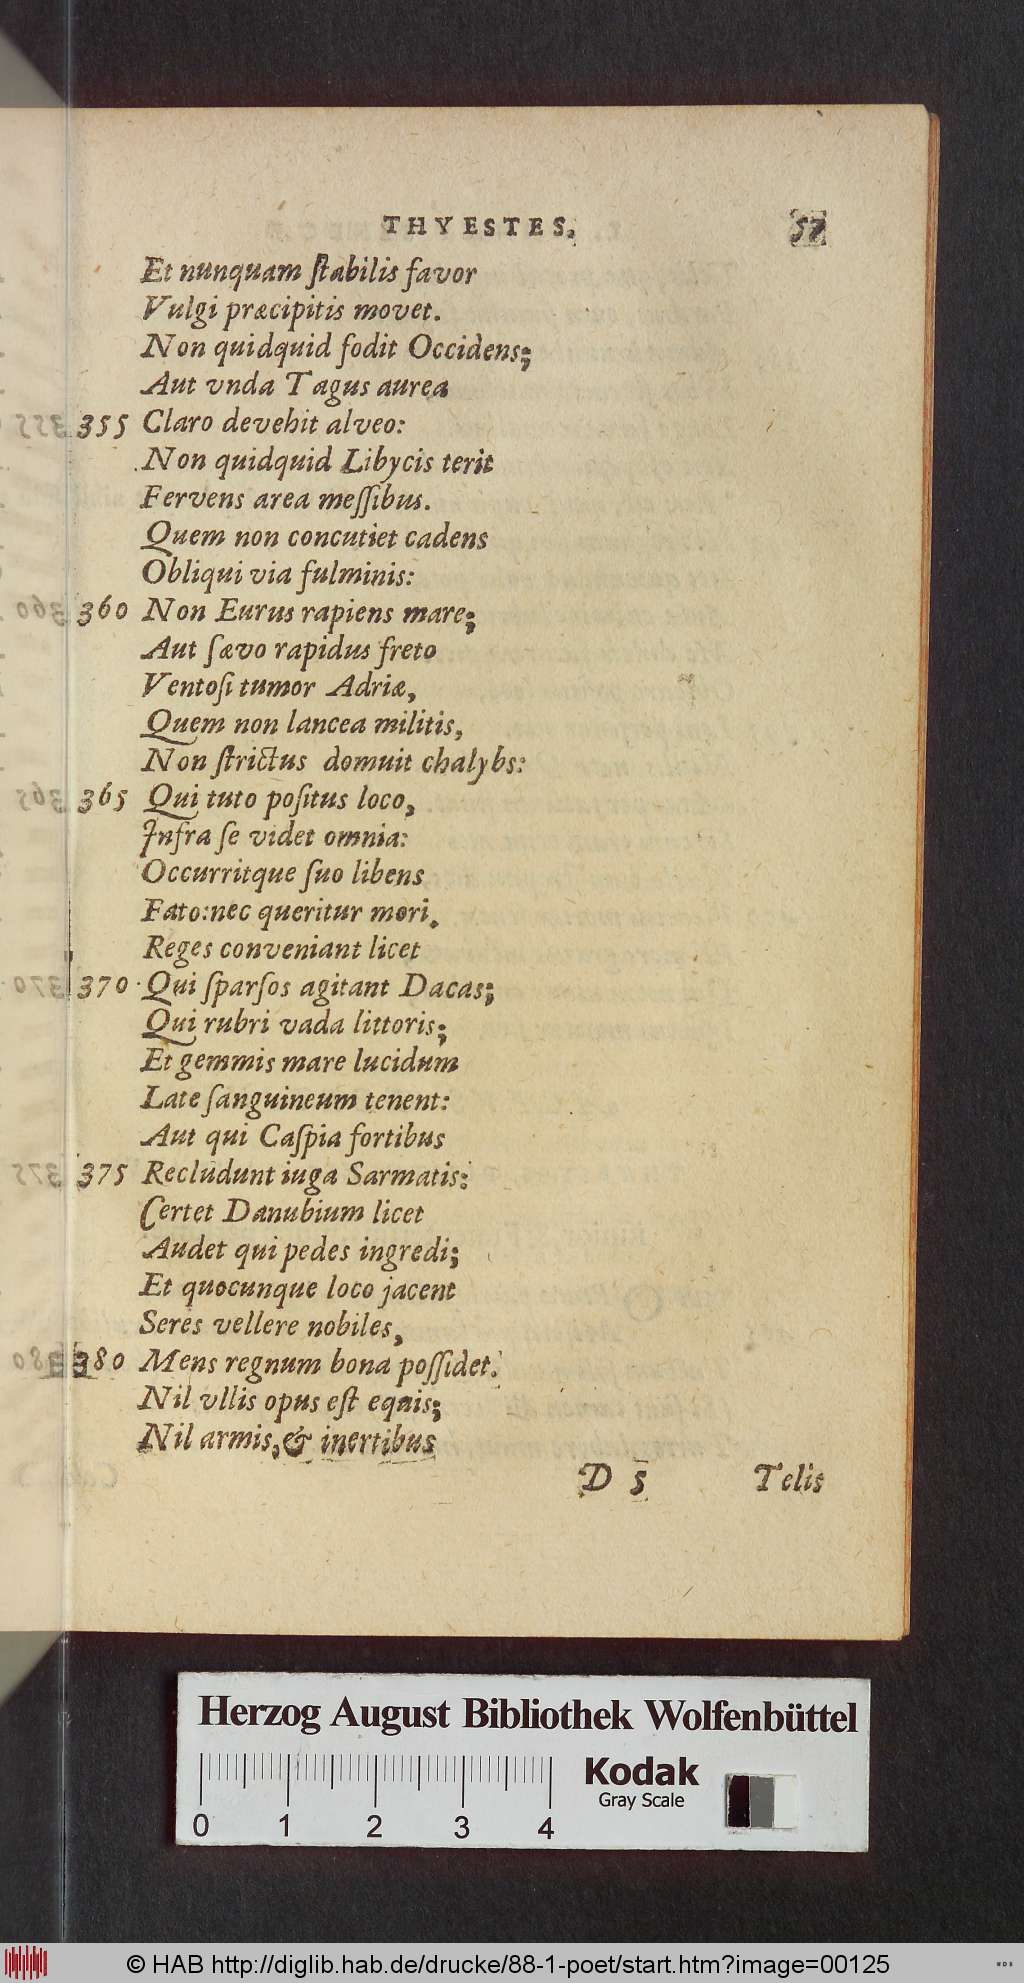 THYESTES. 57
Et nunquam ſtabilis favor
Vulgi præcipitis movet.
Non quidquid fodit Occidens;
Aut vnda Tagus aurea
355 Claro devehit alveo:
Non quidquid Libycis terit
Fervens area meſſibus.
Quem non concutiet cadens
Obliqui via fulminis:
360 Non Eurus rapiens mare;
Aut ſævo rapidus freto
Ventoſi tumor Adriæ,
Quem non lancea militis,
Non ſtrictus domuit chalybs:
365 Qui tuto poſitus loco,
Infra ſe videt omnia:
Occurritque ſuo libens
Fato: nec queritur mori.
Reges conveniant licet
370 Qui ſparſos agitant Dacas;
Qui rubri vada littoris;
Et gemmis mare lucidum
Late ſanguineum tenent:
Aut qui Caſpia fortibus
375 Recludunt iuga Sarmatis:
Certet Danubium licet
Audet qui pedes ingredi;
Et quocunque loco jacent
Seres vellere nobiles,
380 Mens regnum bona poſſidet.
Nil vllis opus eſt equis;
Nil armis, & inertibus
D 5 Telis
Herzog August Bibliothek Wolfenbüttel
Kodak
Gray Scale
0 1 2 3 4
© HAB http://diglib.hab.de/drucke/88-1-poet/start.htm?image=00125